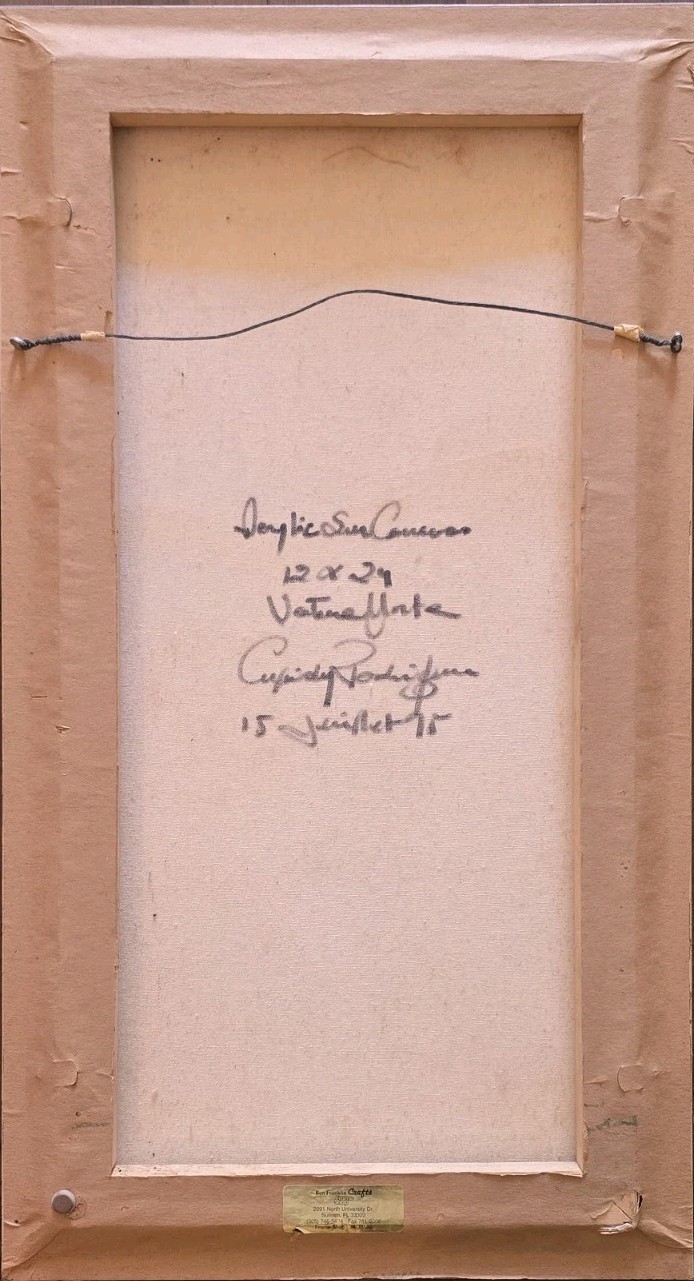 Acrylic Sur Canevas
12 x 24
Nature Morte
15 Juillet 95
Ben Franklin Crafts
2091 North University Dr.
Sunrise, FL 33322